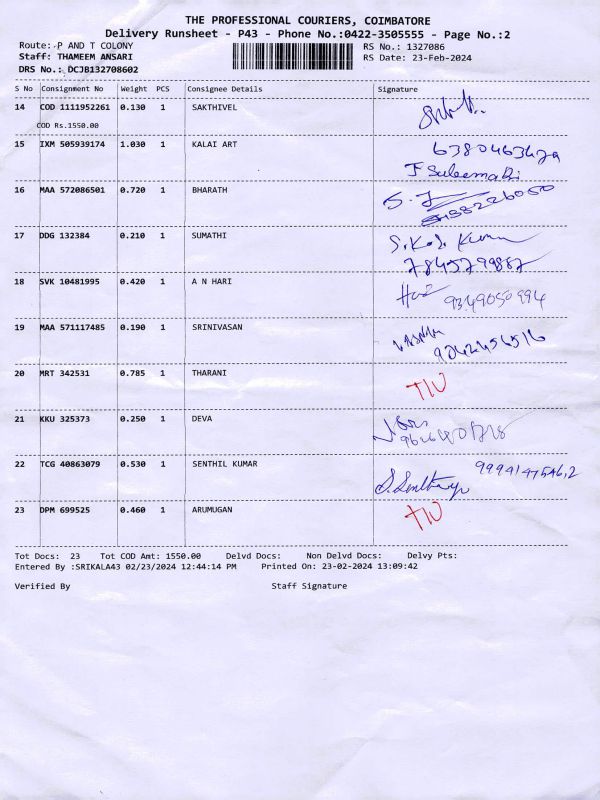 THE PROFESSIONAL COURIERS, COIMBATORE
Delivery Runsheet - P43 - Phone No.:0422-3505555 - Page No.:2
Route: P AND T COLONY RS No.: 1327086
Staff: THAMEEM ANSARI RS Date: 23-Feb-2024
DRS No.: DCJB132708602
S No Consignment No Weight PCS Consignee Details Signature
14 COD 1111952261 0.130 1 SAKTHIVEL
COD Rs.1550.00
15 IXM 505939174 1.030 1 KALAI ART
16 MAA 572086501 0.720 1 BHARATH
17 DDG 132384 0.210 1 SUMATHI
7845799887
18 SVK 10481995 0.420 1 A N HARI
9349050994
19 MAA 571117485 0.190 1 SRINIVASAN
20 MRT 342531 0.785 1 THARANI
21 KKU 325373 0.250 1 DEVA
22 TCG 40863079 0.530 1 SENTHIL KUMAR
23 DPM 699525 0.460 1 ARUMUGAN
Tot Docs: 23 Tot COD Amt: 1550.00 Delvd Docs: Non Delvd Docs: Delvy Pts:
Entered By :SRIKALA43 02/23/2024 12:44:14 PM Printed On: 23-02-2024 13:09:42
Verified By Staff Signature